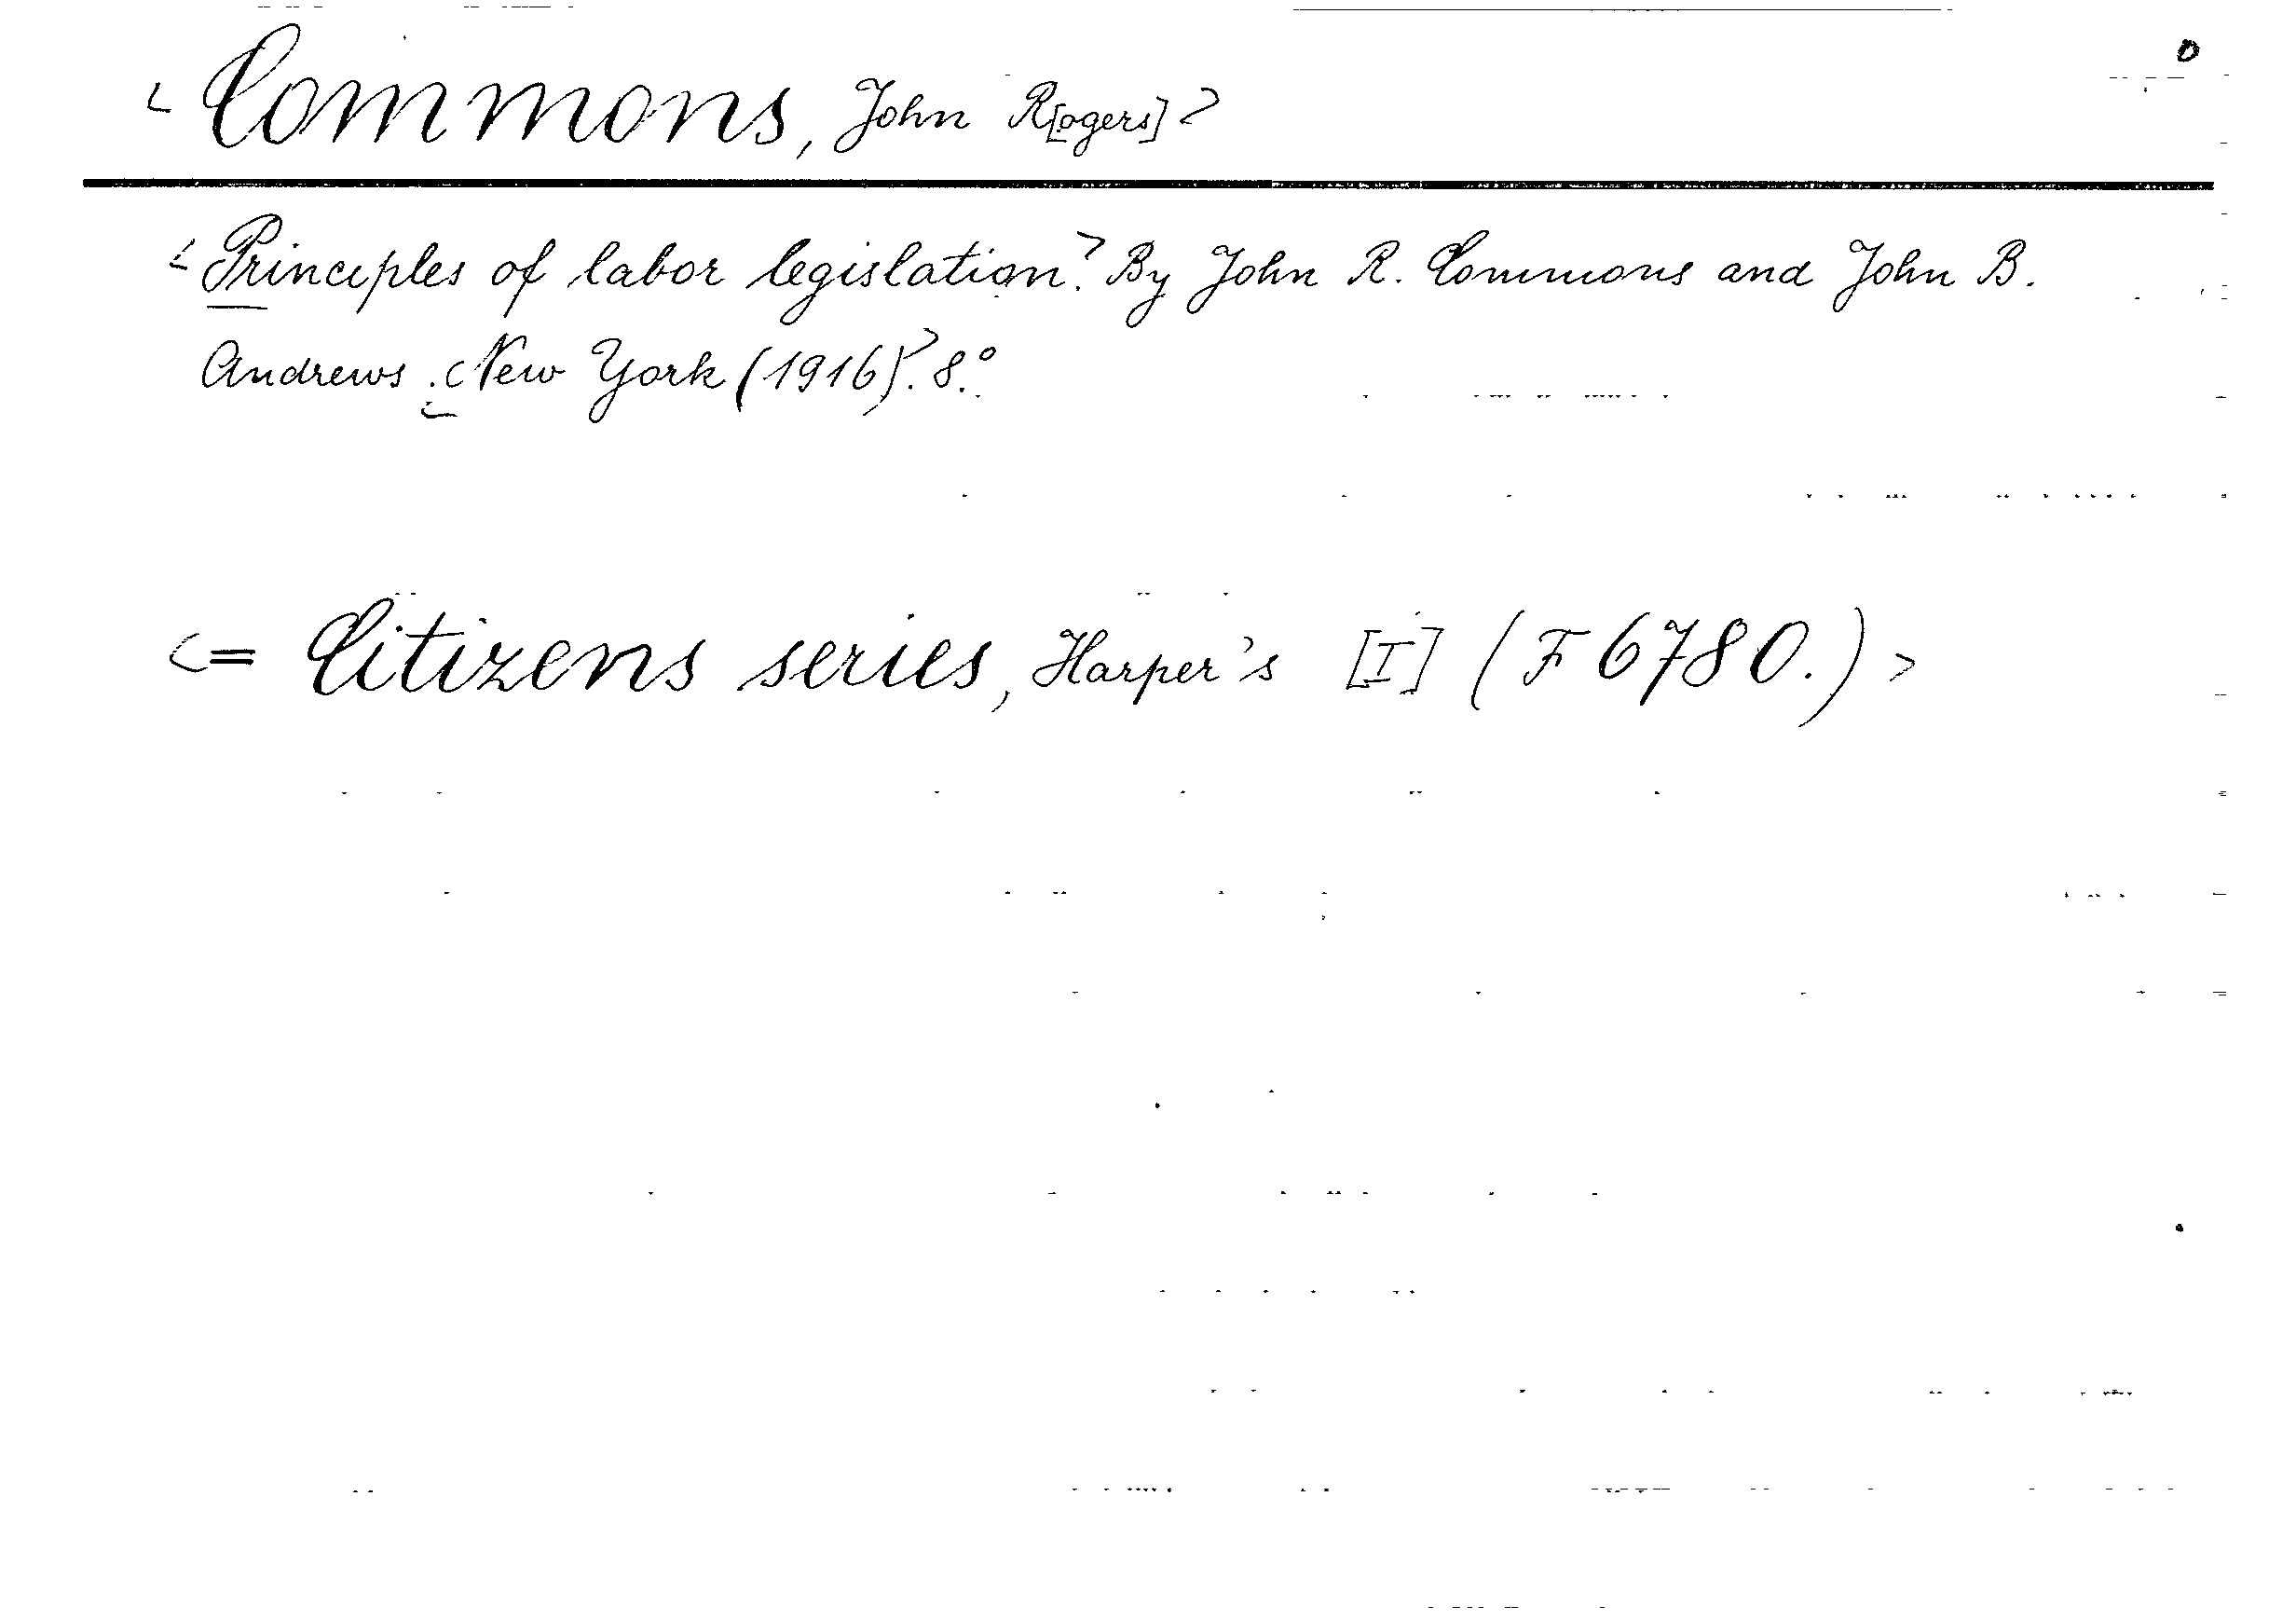 <Commons, John R[ogers]>
<Principles of labor legislation.> By John R. Commons and John B.
Andrews. <New York (1916)>. 8.°
<= Citizens series, Harper's [I] (F 6780.)>